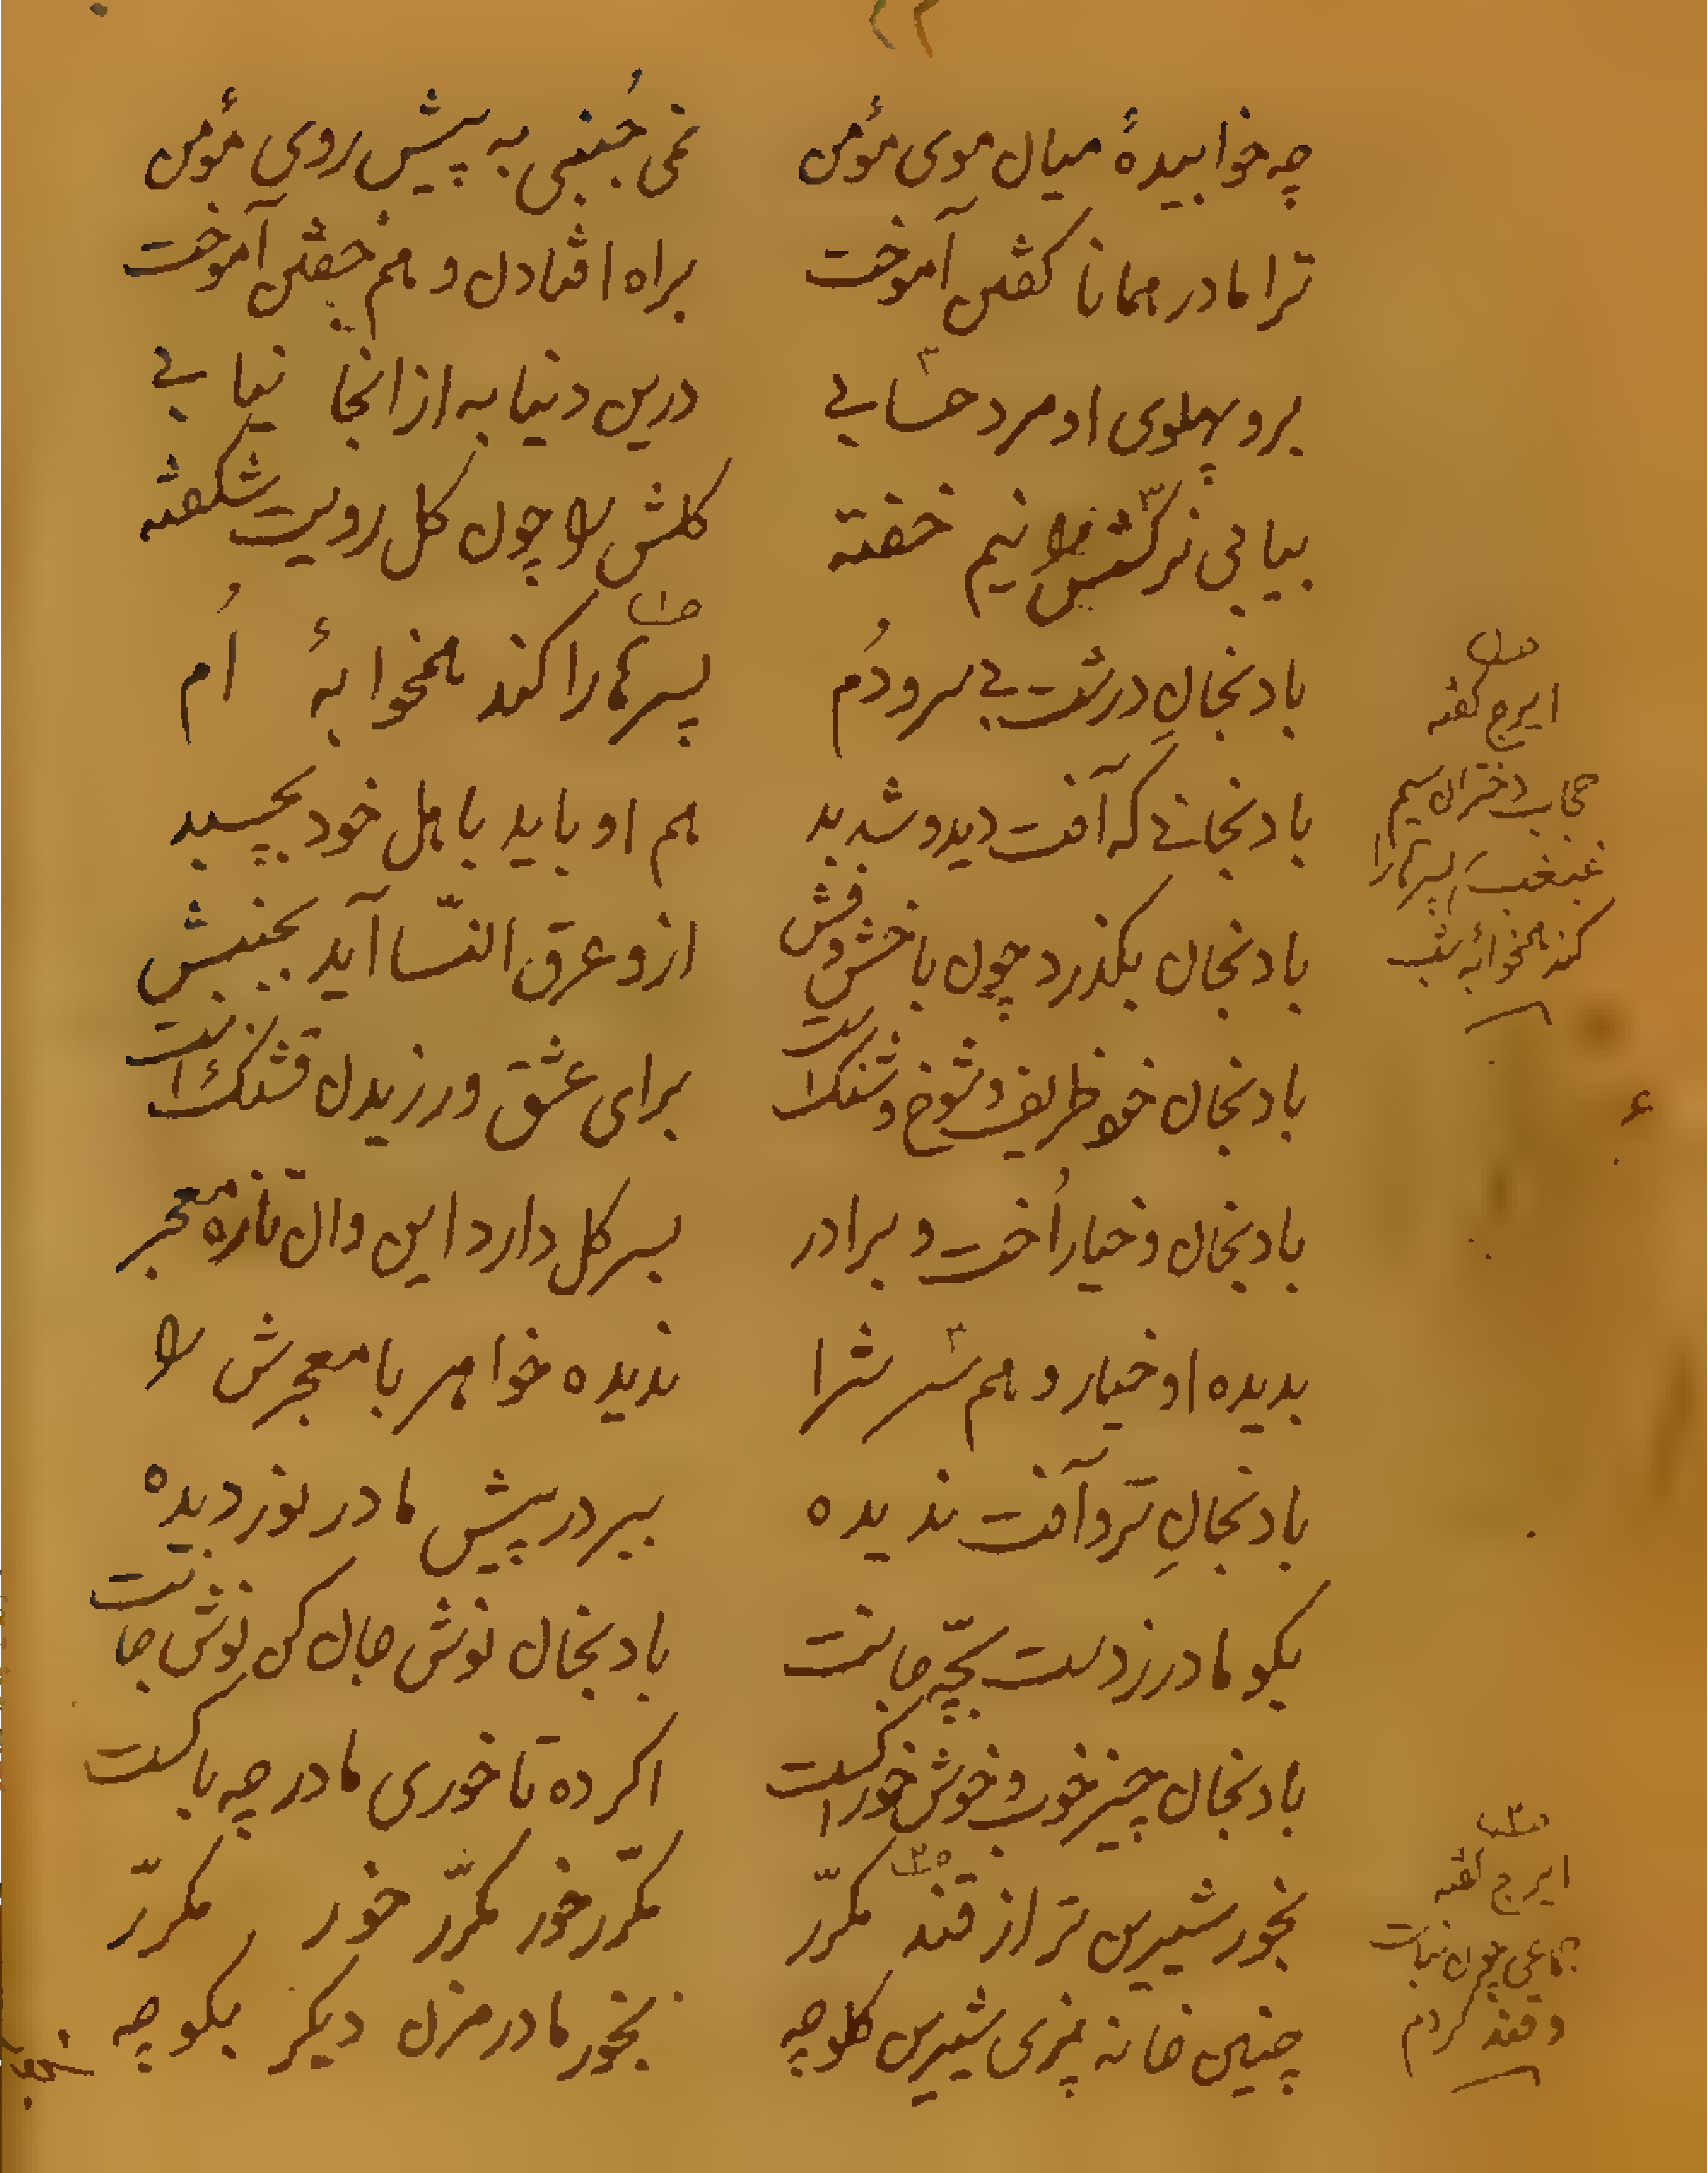 ۴۳
چه خوابیدهٔ میان موی مؤمن نمی‌جُنبی به پیش روی مؤمن
ترا مادر همانا کفتن آموخت براه افتادن و هم خفتن آموخت
برو پهلوی او مرد حسابی درین دنیا به از انجا نیابی
بیابی نرکسش را نیم خفته کلش را چون کل رویت شکفته
بادنجانِ درشت بی سر و دُم پسرها را کند همخوابهٔ اُم
بادنجانی که آفت دید و شد بد هم او باید باهل خود بچسبد
بادنجان بکذرد چون با خش و فش ازو عرق النّسا آید بجنبش
بادنجان خود ظریف و شوخ و شنک است برای عشق ورزیدن قشنک است
بادنجان و خیار اُخت و برادر بسر کل دارد این وان تازه معجر
بدیده او خیار و هم سرش را ندیده خواهر با معجرش را
بادنجانِ تر و آفت ندیده ببر در پیش مادر نوردیده
بکو مادر ز دست بچّه جانت بادنجان نوش جان کن نوش جانت
بادنجان چیز خوب و خوش خوراکست اکر ده تا خوری مادر چه باکست
بخور شیرین تر از قند مکرّر مکرّر خور مکرّر خور مکرّر
چنین خانه پزی شیرین کلوچه بخور مادر مزن دیکر بکوچه
ایرج کفته
حجاب دختران سیم
غبغب پسرها را
کند همخوابهٔ شب
ایرج کفته
جماعی چون نبات
و قند کردم